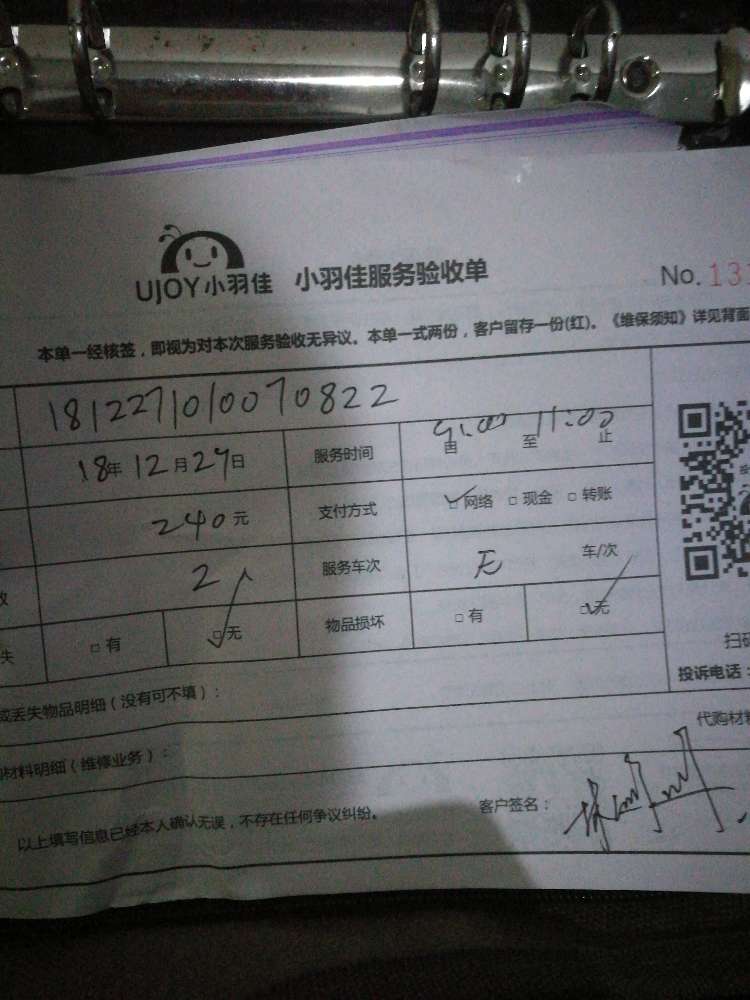 UJOY小羽佳 小羽佳服务验收单 No.13
本单一经核签，即视为对本次服务验收无异议。本单一式两份，客户留存一份(红)。《维保须知》详见背面
1812271010070822
18年12月27日 服务时间 9:00 由 至 11:00 止
240元 支付方式 ☑网络 □现金 □转账
2 服务车次 无 车/次
失 □有 ☑无 物品损坏 □有 ☑无
扫
或丢失物品明细（没有可不填）： 投诉电话：
材料明细（维修业务）： 代购材料
以上填写信息已经本人确认无误，不存在任何争议纠纷。 客户签名：